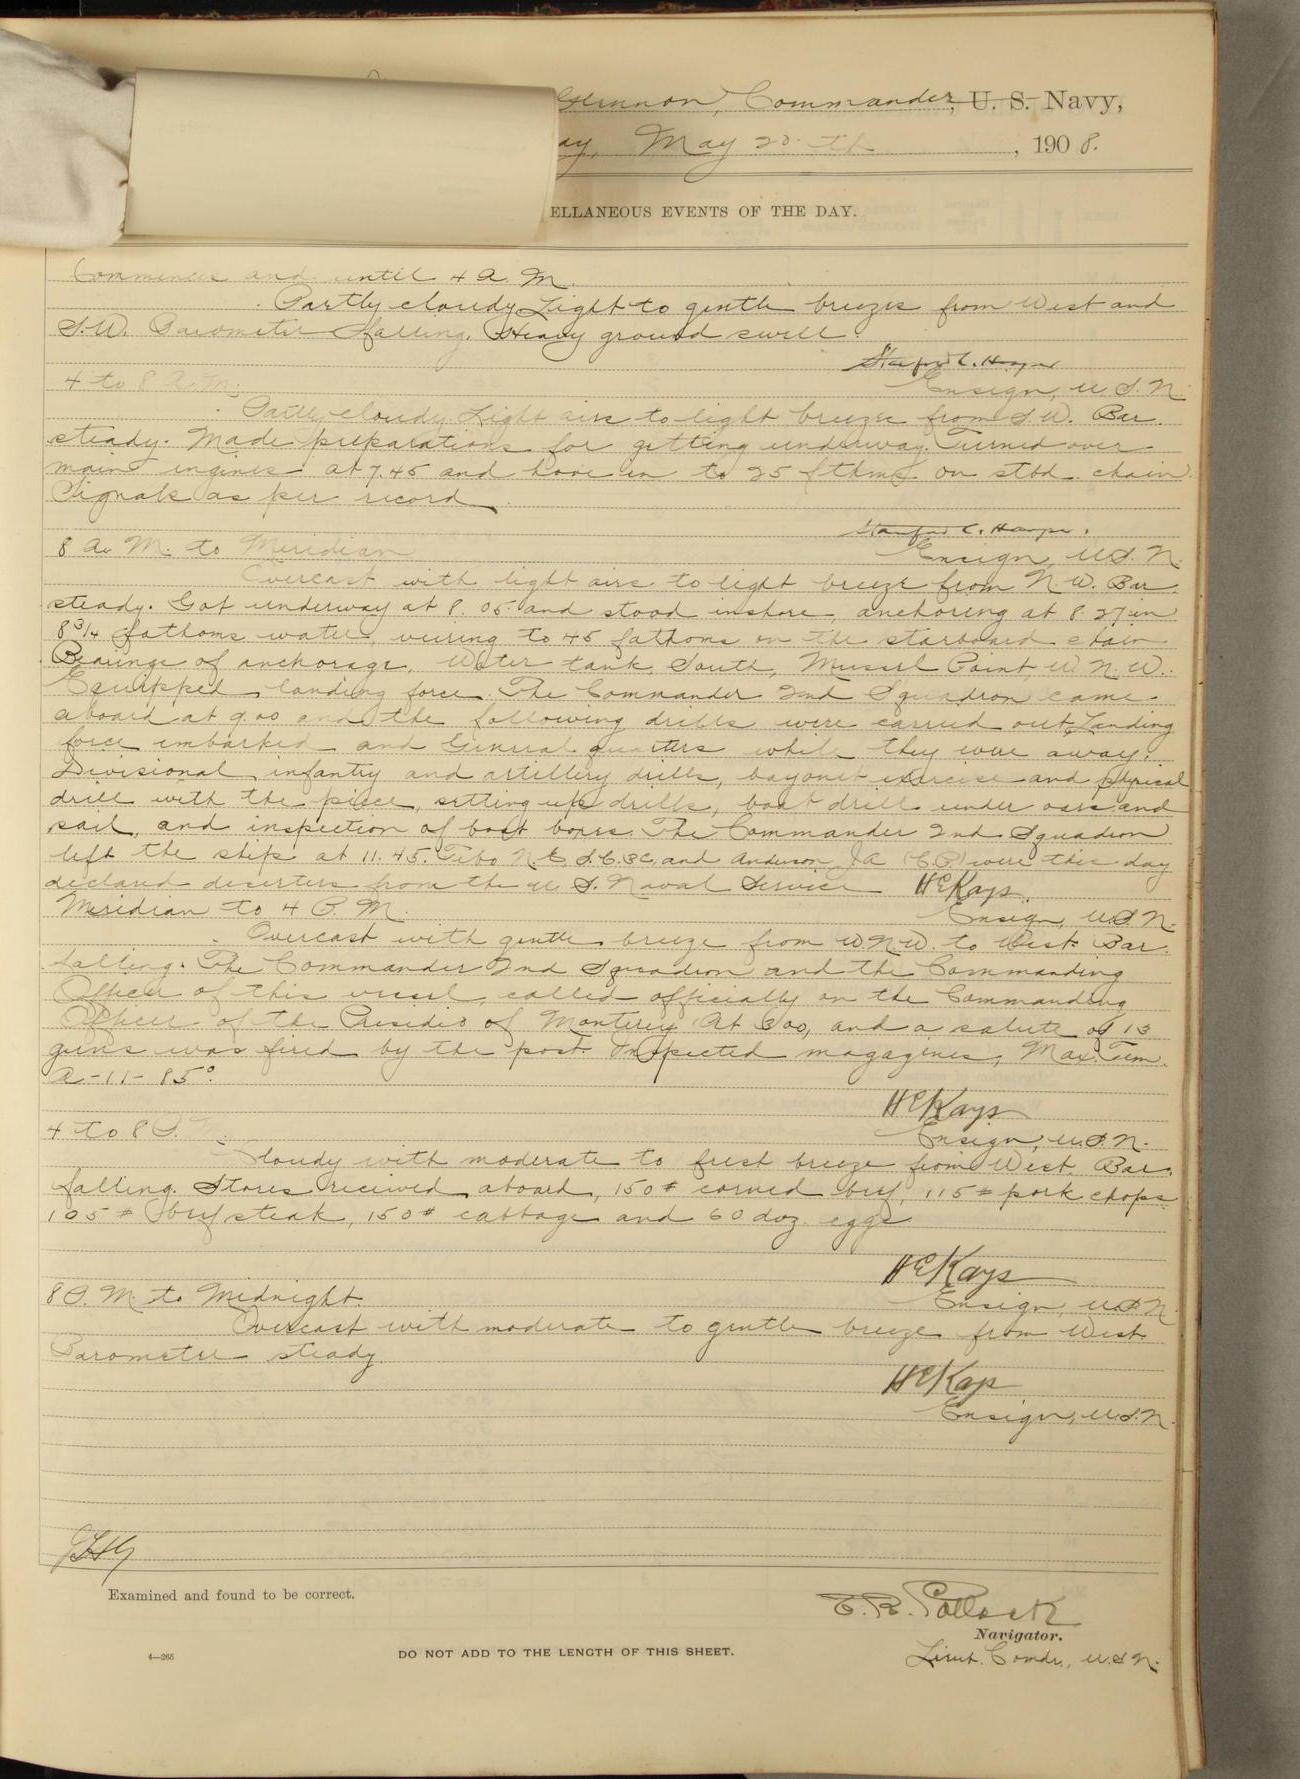 Gherardi, Commander, U. S. Navy,
ay, May 20 th, 1908.
ELLANEOUS EVENTS OF THE DAY.
Commences and until 4 A. M.
Partly cloudy. Light to gentle breezes from West and
S.W. Barometer falling. Heavy ground swell.
Stanford C. Hooper
Ensign, U.S.N.
4 to 8 A.M.
Partly cloudy. Light airs to light breeze from S.W. Bar.
steady. Made preparations for getting underway. Turned over
main engines at 7.45 and hove in to 25 fthms on stbd. chain.
Signals as per record.
Stanford C. Hooper.
Ensign, U.S.N.
8 A. M. to Meridian
Overcast with light airs to light breeze from N.W. Bar.
steady. Got underway at 8.05 and stood inshore, anchoring at 8.27 in
8 3/4 fathoms water, veering to 45 fathoms on the starboard chain
Bearings of anchorage, Water tank, South, Mussel Point, W.N.W.
Equipped landing force. The Commander 2nd Squadron came
aboard at 9.00 and the following drills were carried out, Landing
force embarked and General quarters while they were away.
Divisional infantry and artillery drills, bayonet exercise and physical
drill with the piece, setting up drills, boat drill under oars and
sail, and inspection of boat boxes. The Commander 2nd Squadron
left the ship at 11.45. N.E. and Anderson, J.A. (C.P.) were this day
declared deserters from the U.S. Naval Service
HEKays.
Ensign, U.S.N.
Meridian to 4 P. M.
Overcast with gentle breeze from W.N.W. to West. Bar.
falling. The Commander 2nd Squadron and the Commanding
Officer of this vessel, called officially on the Commanding
Officer of the Presidio of Monterey at 3.00, and a salute of 13
guns was fired by the post. Inspected magazines, Max. Tem.
A-11-85°.
HEKays
Ensign, U.S.N.
4 to 8 P.
Cloudy with moderate to fresh breeze from West. Bar.
falling. Stores received aboard, 150# corned beef, 115# pork chops
105# beefsteak, 150# cabbage and 60 doz. eggs
HEKays
Ensign, U.S.N.
8 P. M. to Midnight.
Overcast with moderate to gentle breeze from West.
Barometer steady.
HEKays
Ensign, U.S.N.
Examined and found to be correct.
C. R. Pollock
Navigator.
4—265
DO NOT ADD TO THE LENGTH OF THIS SHEET.
Lieut. Comdr., U.S.N.